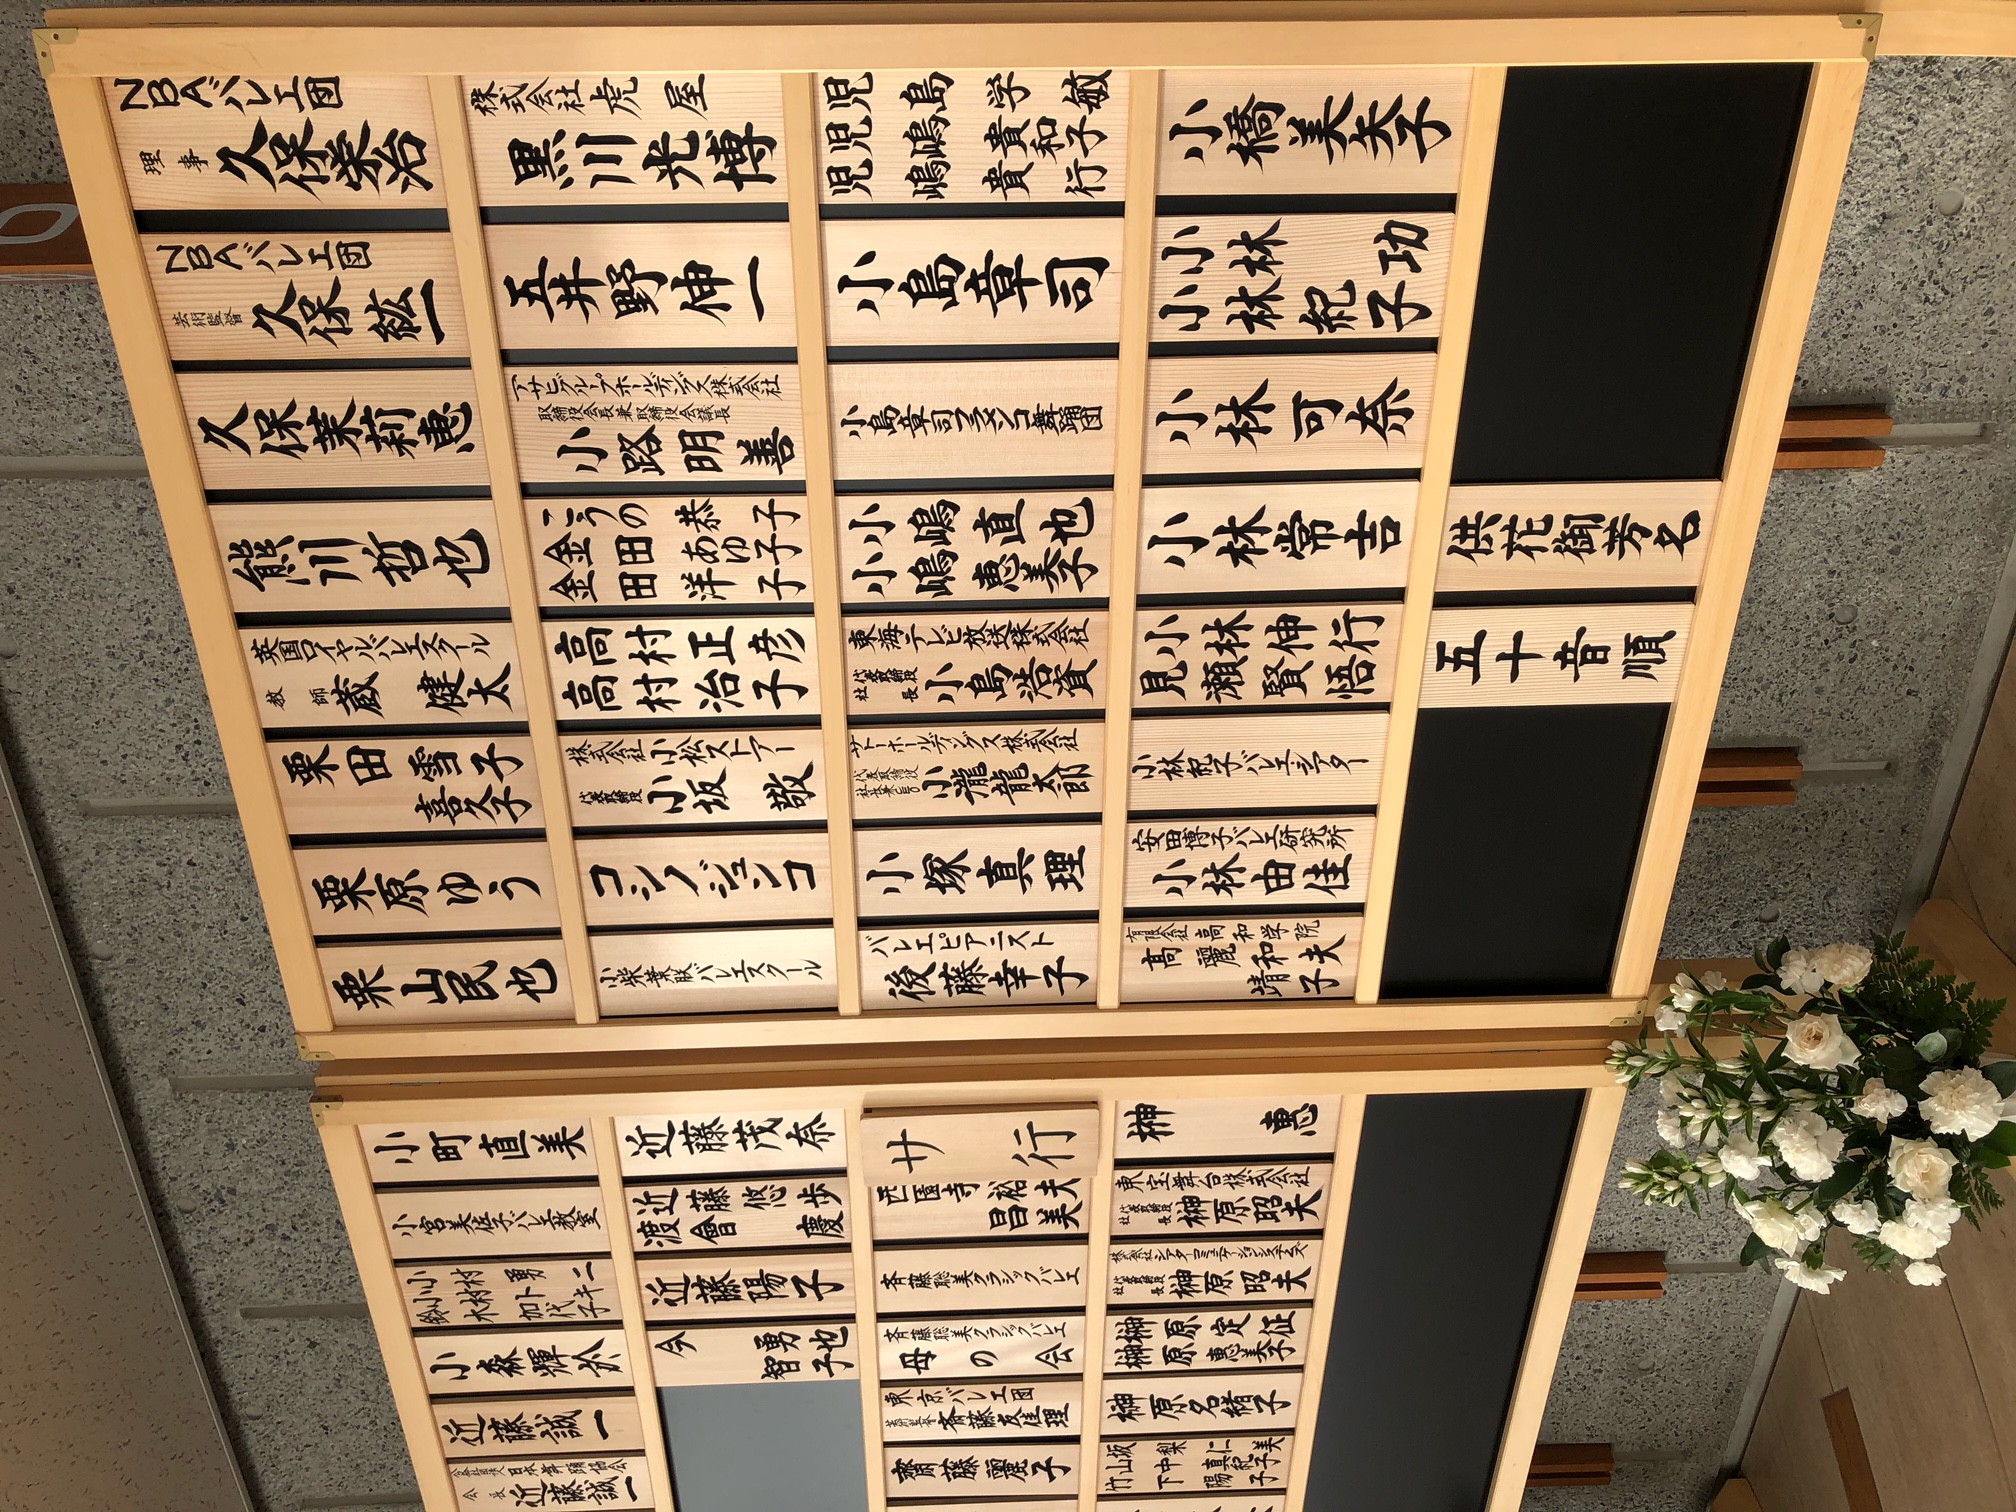 NBAバレエ団
理事 久保栄治
NBAバレエ団
芸術監督 久保紘一
久保茉莉恵
熊川哲也
英国ロイヤルバレエスクール
教師 蔵健太
栗田雪子
喜久子
栗原ゆう
栗山民也
株式会社虎屋
黒川光博
五井野伸一
アサヒグループホールディングス株式会社
取締役会長兼取締役会議長
小路明善
こうの恭子
金田あゆ子
金田洋子
高村正彦
高村治子
株式会社小松ストアー
代表取締役 小坂敬
コシノジュンコ
小柴葉朕バレエスクール
児嶋学敏
児嶋貴和子
児島貴行
小島章司
小島章司フラメンコ舞踊団
小嶋直也
小嶋恵美子
東海テレビ放送株式会社
代表取締役社長 小島浩資
サトーホールディングス株式会社
代表取締役社長兼CEO 小瀧龍太郎
小塚真理
バレエピアニスト
後藤幸子
小橋美矢子
小林功
小林紀子
小林可奈
小林常吉
小林伸行
見瀬賢悟
小林紀子バレエ・シアター
安田博子バレエ研究所
小林由佳
有限会社高和学院
高麗和夫
靖子
供花御芳名
五十音順
小町直美
小宮美佳子バレエ教室
小村勇二
小村トキ
鈴木加代子
小森輝於
近藤誠一
公益社団法人日本舞踊協会
会長 近藤誠一
近藤茂奈
近藤悠歩
渡會慶
近藤陽子
今勇也
智子
サ行
西園寺裕夫
昌美
斉藤聡美クラシックバレエ
斉藤聡美クラシックバレエ
母の会
東京バレエ団
芸術監督 斎藤友佳理
齋藤麗子
榊恵
東宝舞台株式会社
代表取締役社長 榊原昭夫
株式会社シアターコミュニケーションシステムズ
代表取締役社長 榊原昭夫
榊原定征
榊原恵美子
榊原名緒子
坂梨仁美
山中真紀子
竹下陽子